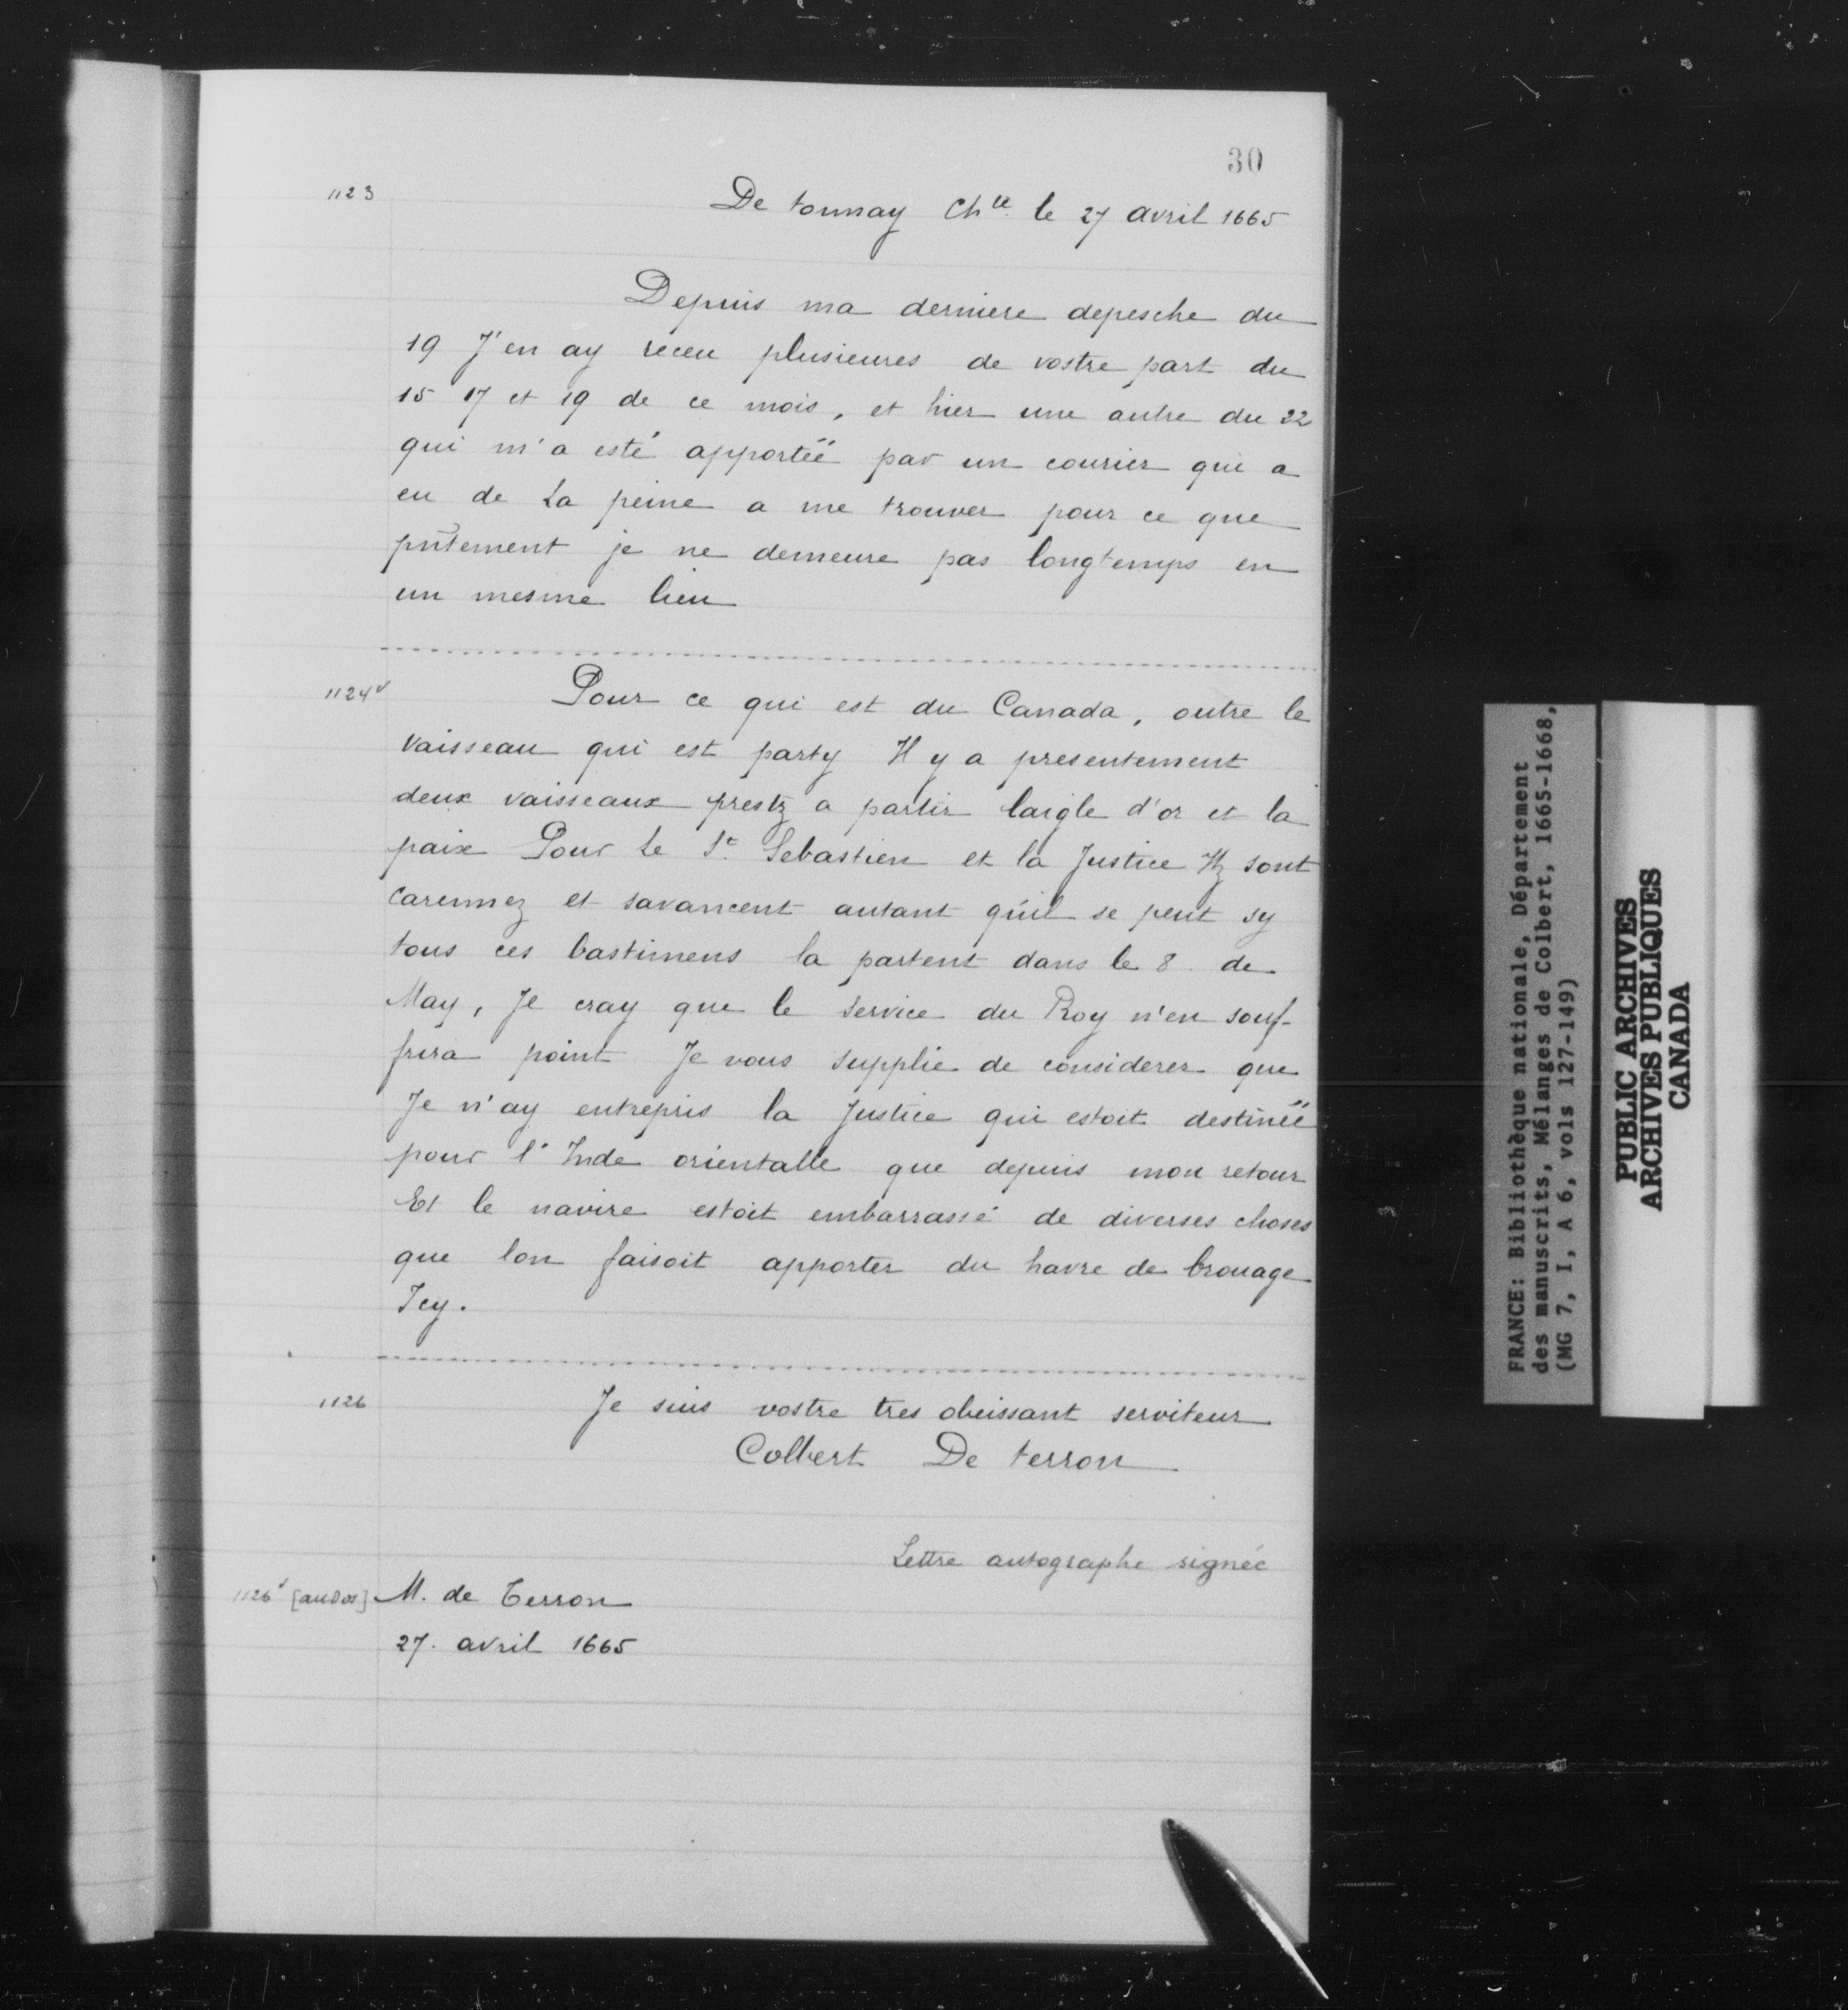 30
1123
De tonnay Ch^te. le 27 avril 1665
Depuis ma derniere depesche du
19 J'en ay receu plusieures de vostre part du
15 17 et 19 de ce mois, et hier une autre du 22
qui m'a esté apportëë par un courier qui a
eu de La peine a me trouver pour ce que
pn̄tement je ne demeure pas longtemps en
un mesme lieu
1124^v
Pour ce qui est du Canada, outre le
vaisseau qui est party Il y a presentement
deux vaisseaux prestz a partir laigle d'or et la
paix Pour Le S^t. Sebastien et la Justice Ilz sont
carennez et savancent autant qu'il se peut sy
tous ces bastimens la partent dans le 8. de
May, Je cray que le service du Roy n'en souf-
frira point Je vous supplie de considerer que
Je n'ay entrepris la Justice qui estoit destinëë
pour l'Inde orientalle que depuis mon retour
Et le navire estoit embarrassé de diverses choses
que lon faisoit apporter du havre de brouage
Icy.
1126
Je suis vostre tres obeissant serviteur
Colbert De terron
Lettre autographe signée
1126^v [au dos] M. de Terron
27. avril 1665
FRANCE: Bibliothèque nationale, Département
des manuscrits, Mélanges de Colbert, 1665-1668,
(MG 7, I, A 6, vols 127-149)
PUBLIC ARCHIVES
ARCHIVES PUBLIQUES
CANADA